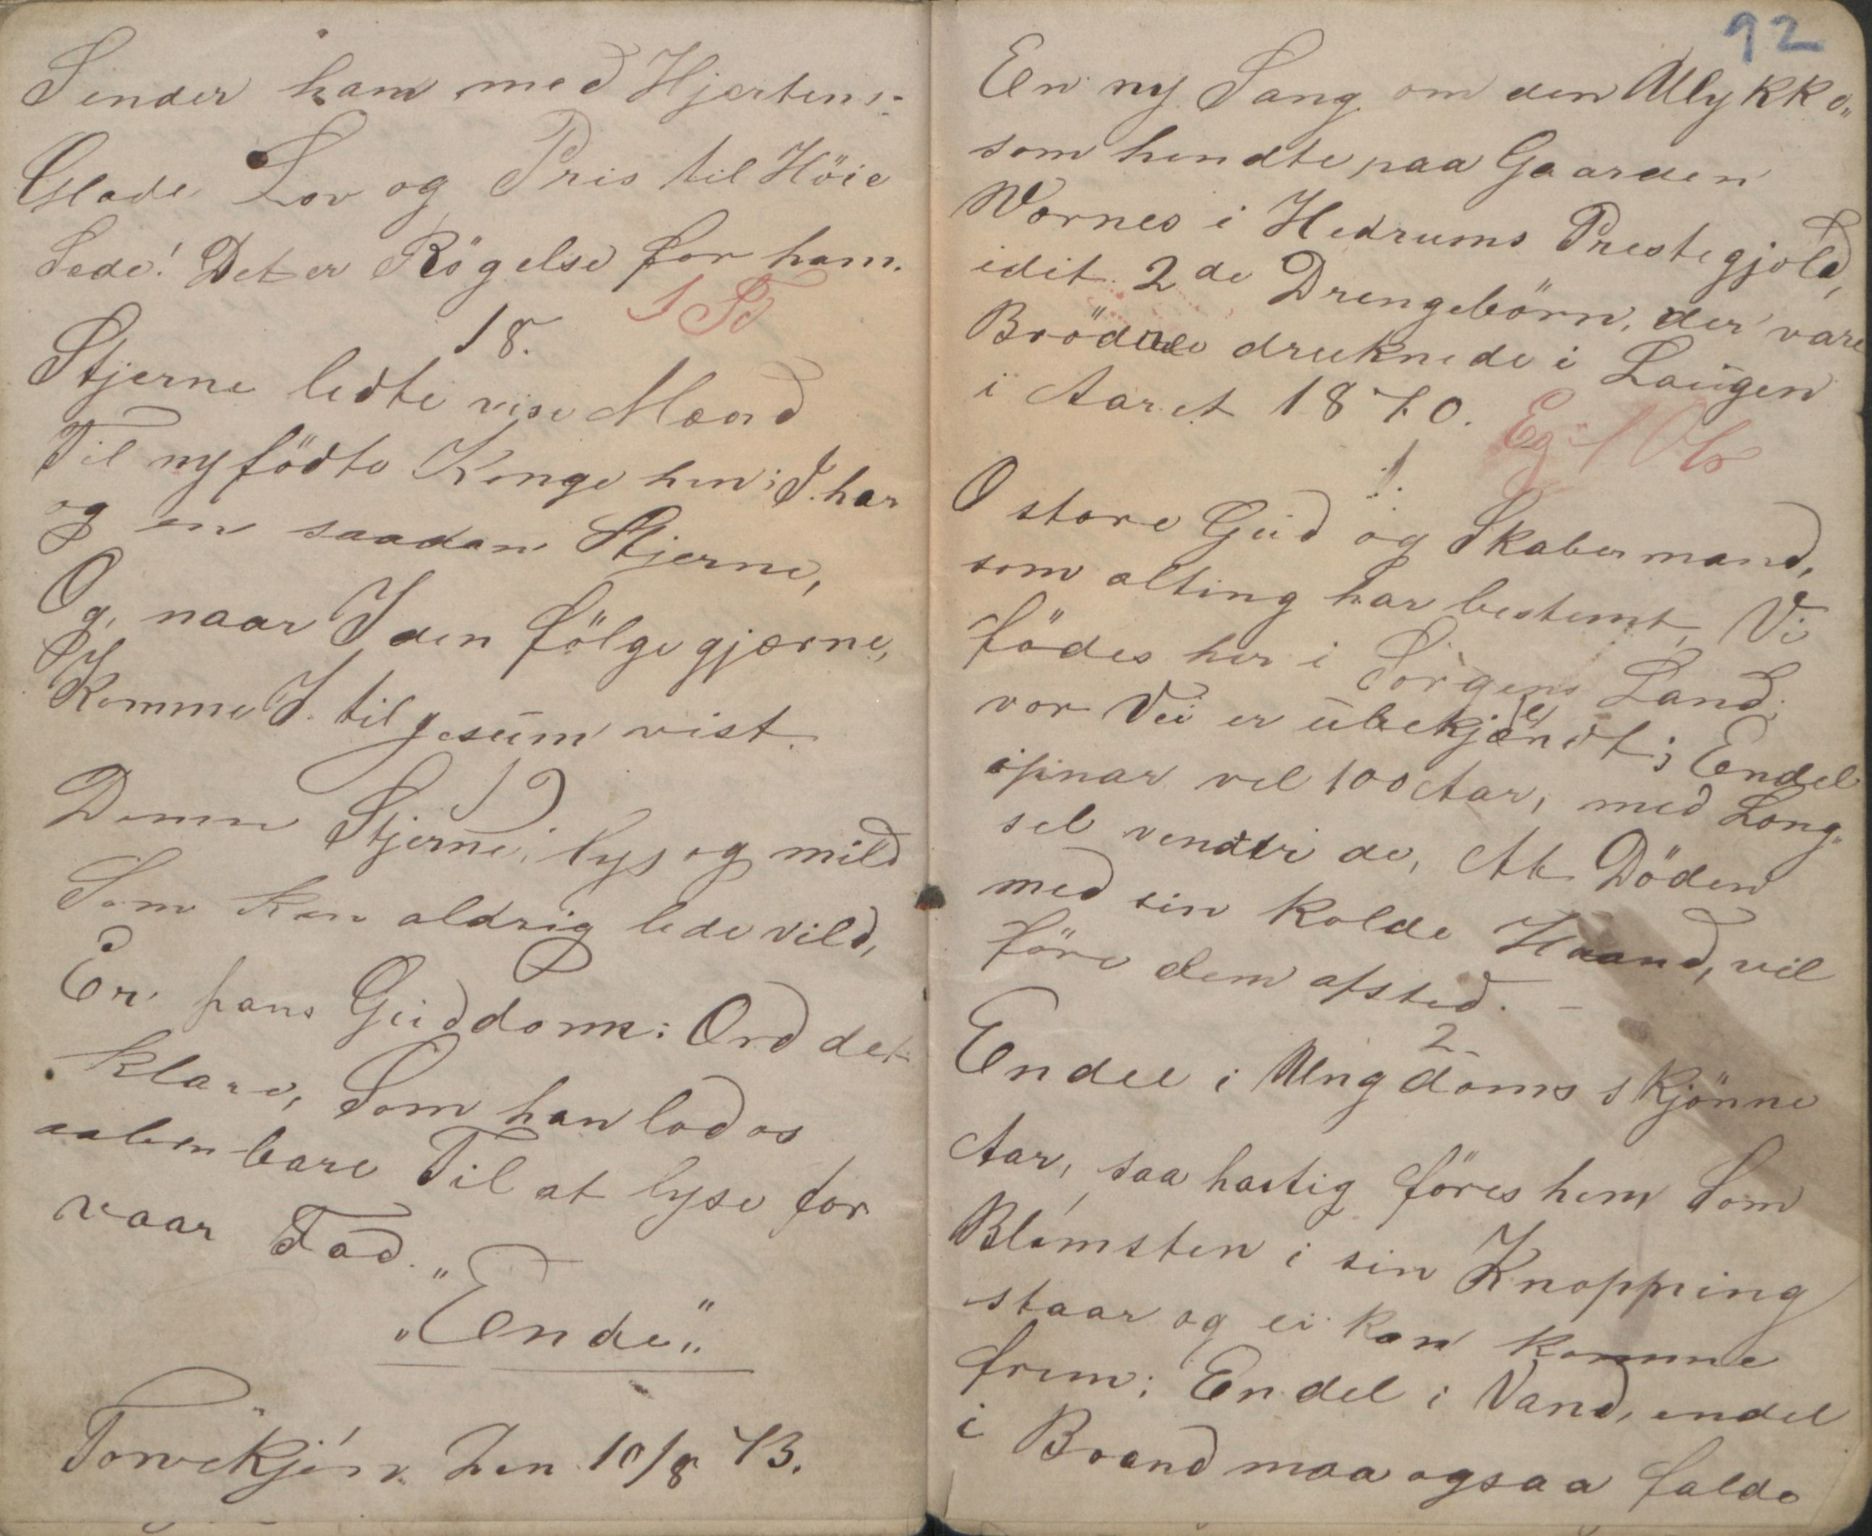 Sender ham med Hjertens-
Glade Lov og Pris til Höie
Sede! Det er Rögelse for ham.
18.
Stjerne ledte vise Mænd
Til nyfödte Konge hen; I har
og en saadan Stjerne,
Og, naar I den fölge gjærne,
Komme I til Jesum vist.
19
Denne Stjerne, lys og mild
Som kan aldrig lede vild,
Er hans Guddoms: Ord det
klare, Som han lod os
aabenbare Til at lyse for
vaar Fod.
"Ende"
Torvekjön Den 10/8 73.
92
En ny Sang om den Ulykke
som hendte paa Gaarden
Wornes i Hedrums Prestegjeld,
idit 2de Drengebörn, der vare
Brödre druknede i Laugen
i Aaret 1870.
1.
O store Gud og Skabermand,
som alting har bestemt, Vi
födes her i Sorgens Land,
vor Vei er ubekjendt; Endel
opnar vel 100 Aar, med Læng-
sel venter de, At Döden
med sin kolde Haand, vil
före dem afsted. –
2
Endel i Ungdoms skjönne
Aar, saa hastig föres hem Som
Blomsten i sin Knopping
staar og ei kan komme
frem; Endel i Vand, endel
i Brand maa ogsaa falde